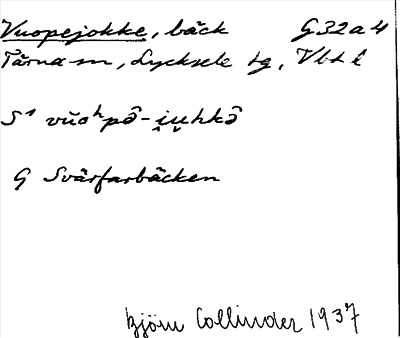 Vuopejokke, bäck G32a4
Tärna sn, Lycksele lg, Vb l
S¹ vŭoʰpô-i̯u̯hkô
G Svärfarbäcken
Björn Collinder 1937